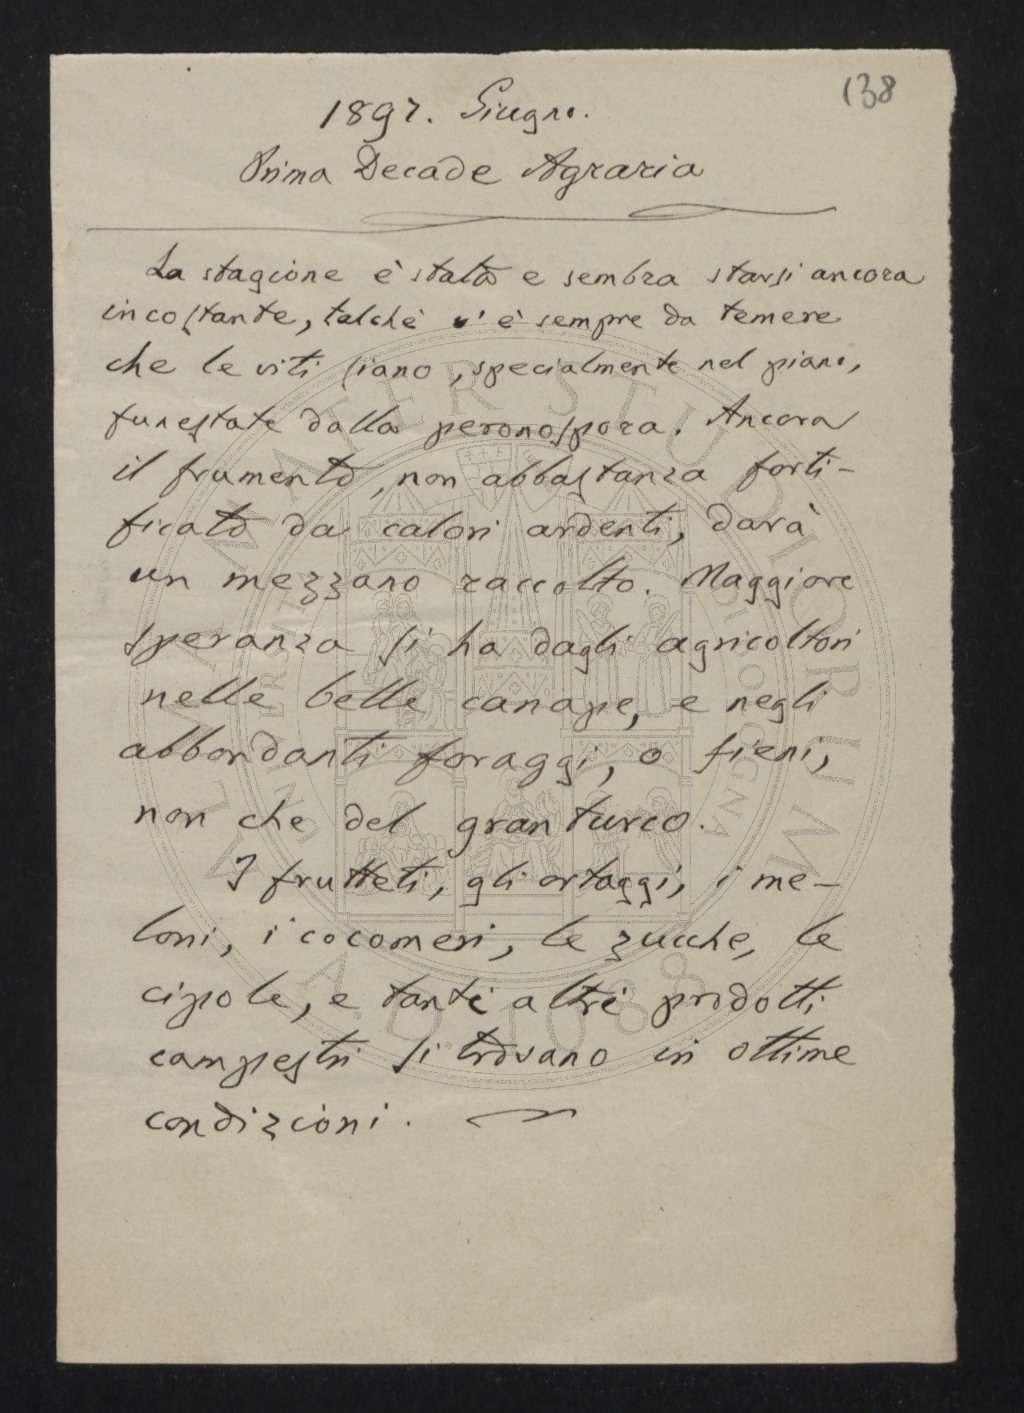 138
1897. Giugno.
Prima Decade Agraria
La stagione è stata e sembra starsi ancora
incostante, talchè v'è sempre da temere
che le viti siano, specialmente nel piano,
funestate dalla peronospora. Ancora
il frumento, non abbastanza forti-
ficato da calori ardenti, darà
un mezzano raccolto. Maggiore
speranza si ha dagli agricoltori
nelle belle canape, e negli
abbondanti foraggi, o fieni,
non che del granturco.
I frutteti, gli ortaggi, i me-
loni, i cocomeri, le zucche, le
cipole, e tanti altri prodotti
campestri si trovano in ottime
condizioni.
ALMA MATER STUDIORUM
A.D. 1088